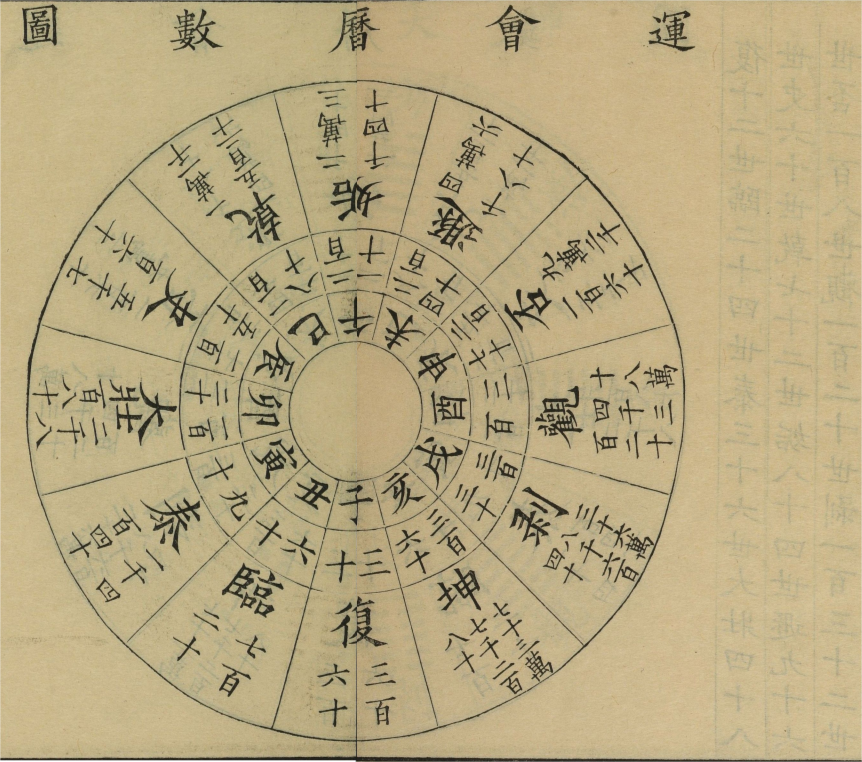 運會曆數圖
子
三十
復
三百
六十
丑
六十
臨
七百
二十
寅
九十
泰
一千四
百四十
卯
一百
二十
大壯
二千八
百八十
辰
一百
五十
夬
五千七
百六十
巳
一百
八十
乾
一萬一千
五百二十
午
二百
一十
姤
二萬三
千四十
未
二百
四十
遯
四萬六
千八十
申
二百
七十
否
九萬二千
一百六十
酉
三百
觀
戌
三百
三十
剝
三十六萬
八千六百
四十
亥
三百
六十
坤
七十三萬
七千二百
八十